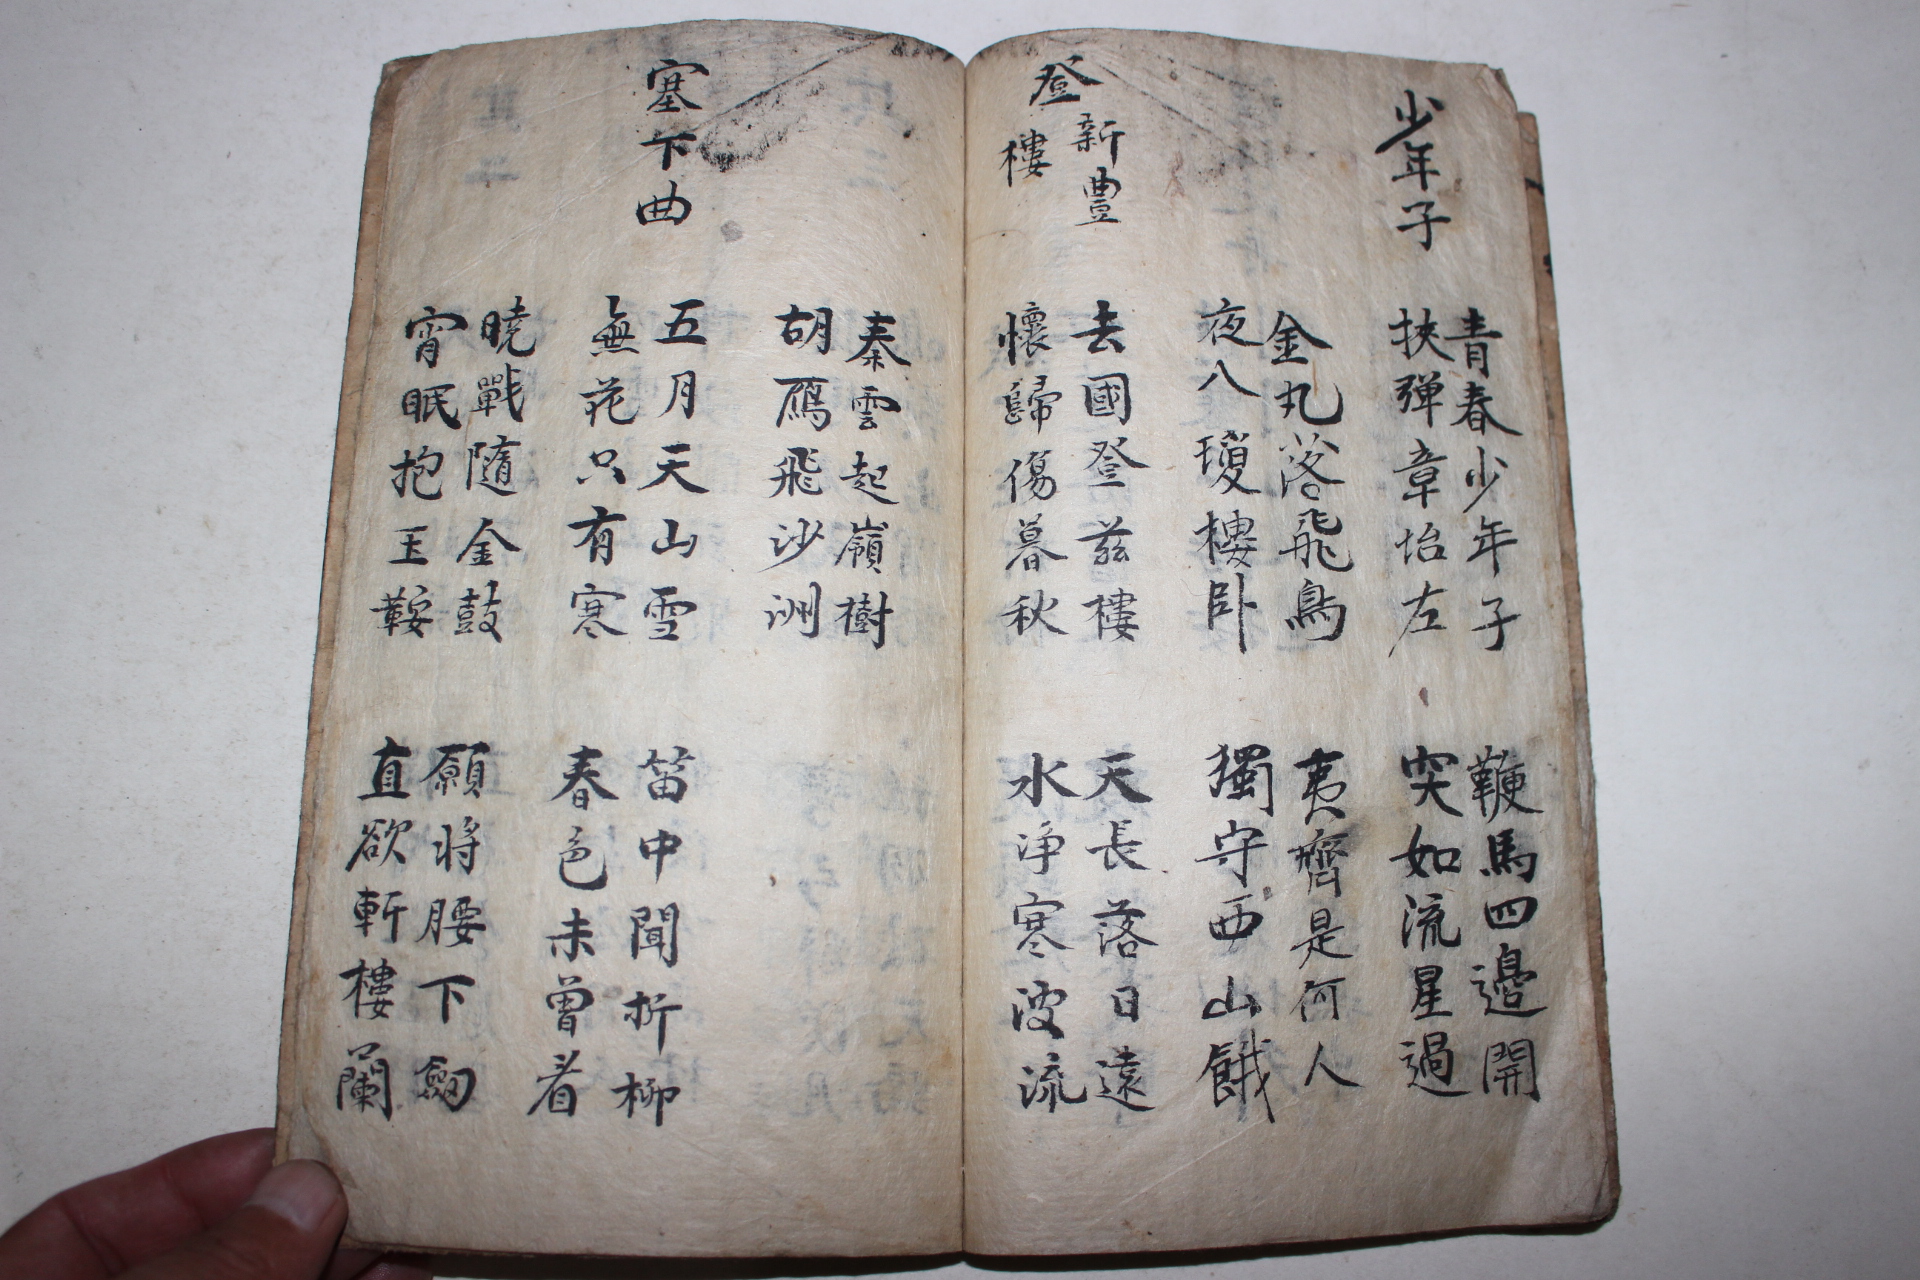 少年子
青春少年子
挾弹章坮左
鞭馬四邊開
突如流星過
金丸落飛鳥
夜入瓊樓卧
夷齊是何人
獨守西山餓
登新豊樓
去國登茲樓
懷歸傷暮秋
天長落日遠
水净寒波流
秦雲起嶺樹
胡鴈飛沙洲
塞下曲
五月天山雪
無花只有寒
笛中聞折柳
春色未曾看
曉戰隨金鼓
宵眠抱玉鞍
願將腰下劒
直欲斬樓蘭